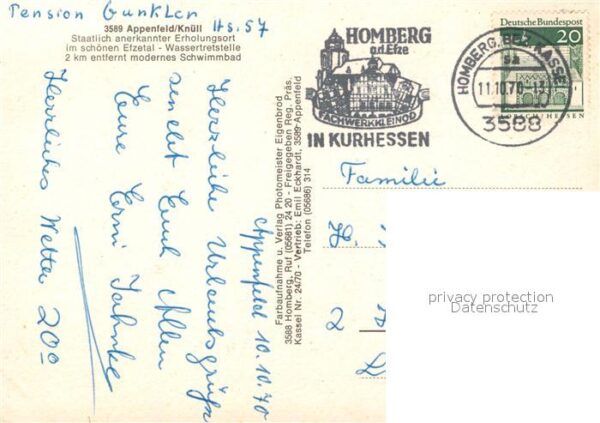 Pension Gunkler
Hs. 57
3589 Appenfeld/Knüll
Staatlich anerkannter Erholungsort
im schönen Efzetal - Wassertretstelle
2 km entfernt modernes Schwimmbad
Appenfeld 10.10.70
Herzliche Urlaubsgrüße
sendet Euch Allen
Eure Erni Jahnke
Herrliches Wetter 20°
Farbaufnahme u. Verlag Photomeister Eigenbrod
3588 Homberg, Ruf (05681) 24 20 - Freigegeben Reg. Präs.
Kassel Nr. 24/70 - Vertrieb: Emil Eckhardt, 3589 Appenfeld
Telefon (05686) 314
HOMBERG
a.d. Efze
FACHWERKKLEINOD
IN KURHESSEN
HOMBERG, BEZ. KASSEL
sa
11.10.70
3588
Deutsche Bundespost
20
LORSCH/HESSEN
Familie
H.
2
D
privacy protection
Datenschutz